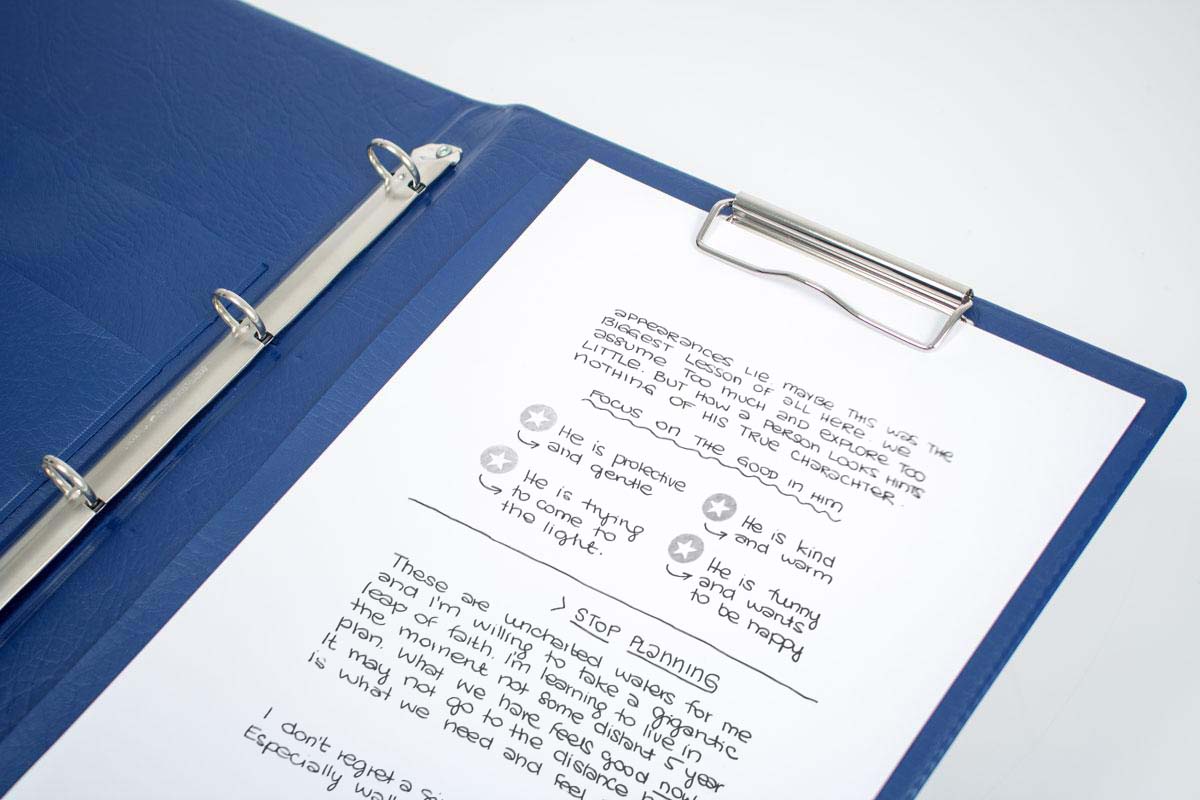 APPEARANCES LIE. MAYBE THIS WAS THE
BIGGEST LESSON OF ALL HERE. WE
ASSUME TOO MUCH AND EXPLORE TOO
LITTLE. BUT HOW A PERSON LOOKS HINTS
NOTHING OF HIS TRUE CHARACHTER.
FOCUS ON THE GOOD IN HIM
He is protective
and gentle
He is trying
to come to
the light.
He is kind
and warm
He is funny
and wants
to be happy
> STOP PLANNING
These are uncharted waters for me
and I'm willing to take a gigantic
leap of faith. I'm learning to live in
the moment not some distant 5 year
plan. What we have feels good now
It may not go to the distance
is what we need and feel
I don't regret a
Especially